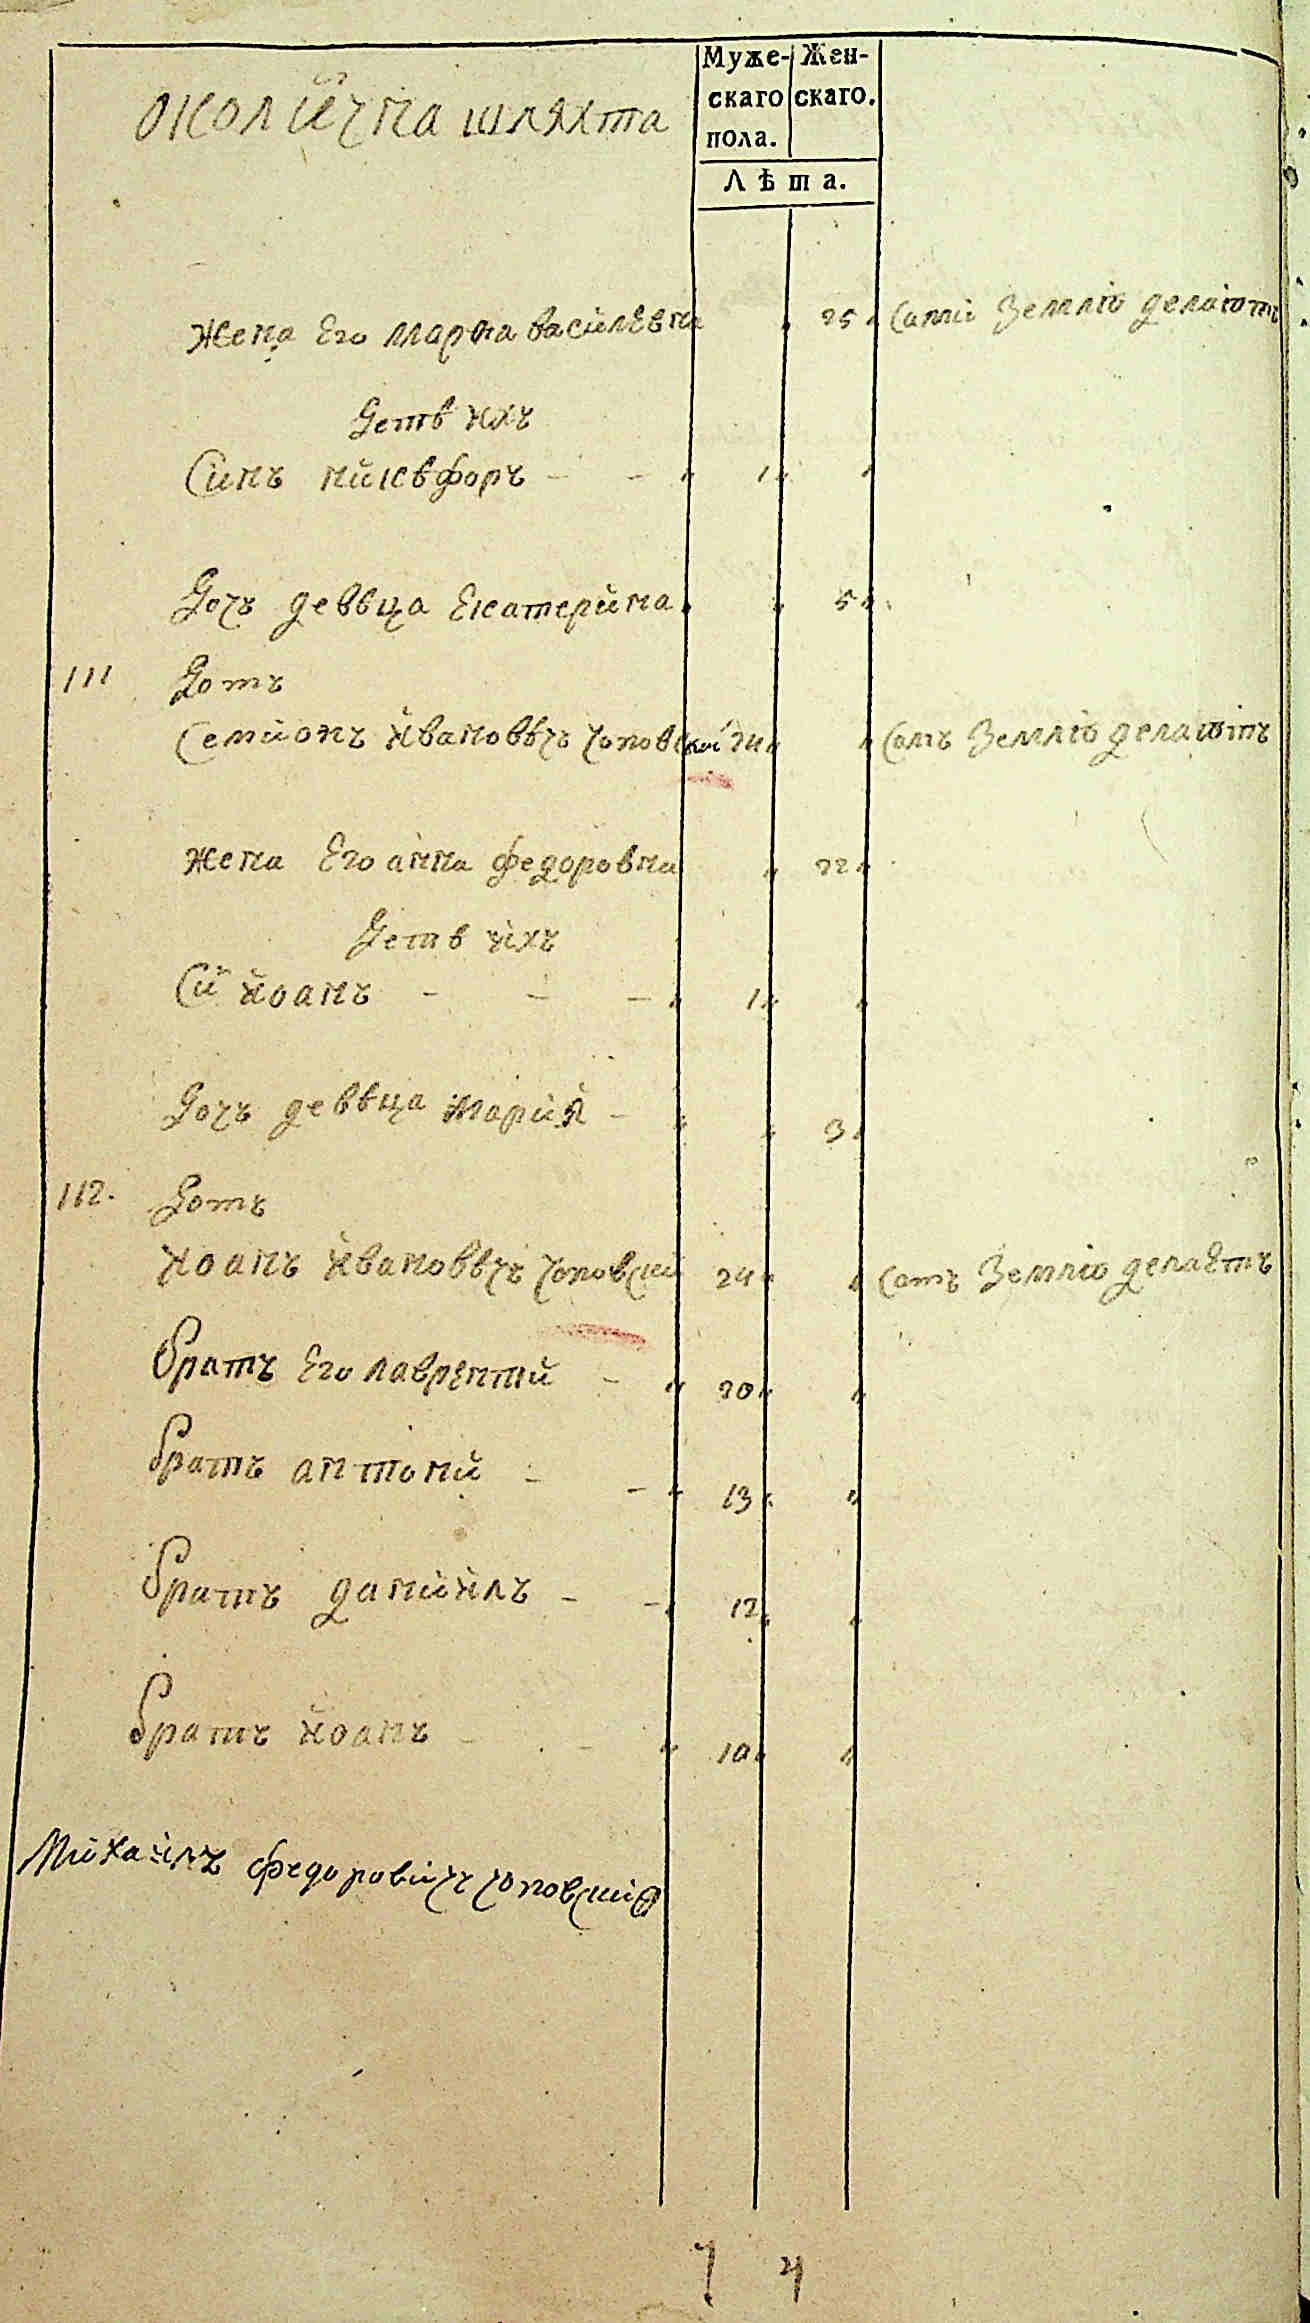 околична шляхта
Муже- Жен-
скаго скаго.
пола.
Лѣта.
Жена Его Марʌа василевна 25 Самы Землю делают
Дети ихъ
Синъ никифоръ 1
Дочъ девица Екатерина 5
111 Домъ
Семионъ Ивановичъ Чоповский 24 Самъ Землю делаютъ
жена Его анна федоровна 22
Дети ихъ
Си Иоанъ 1
Дочъ девица Мария 3
112. Домъ
Иоанъ Ивановичъ Чоповский 24 Самъ Землю делаЕтъ
братъ Его лаврентий 20
братъ антоний 13
братъ даниилъ 12
братъ иоанъ 10
Михаилъ федоровичъ Чоповский
7 4